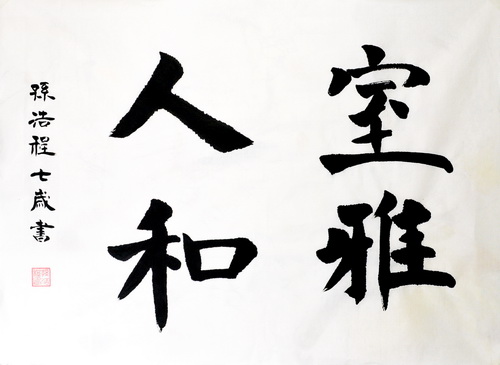 室雅
人和
孫浩程七歲書